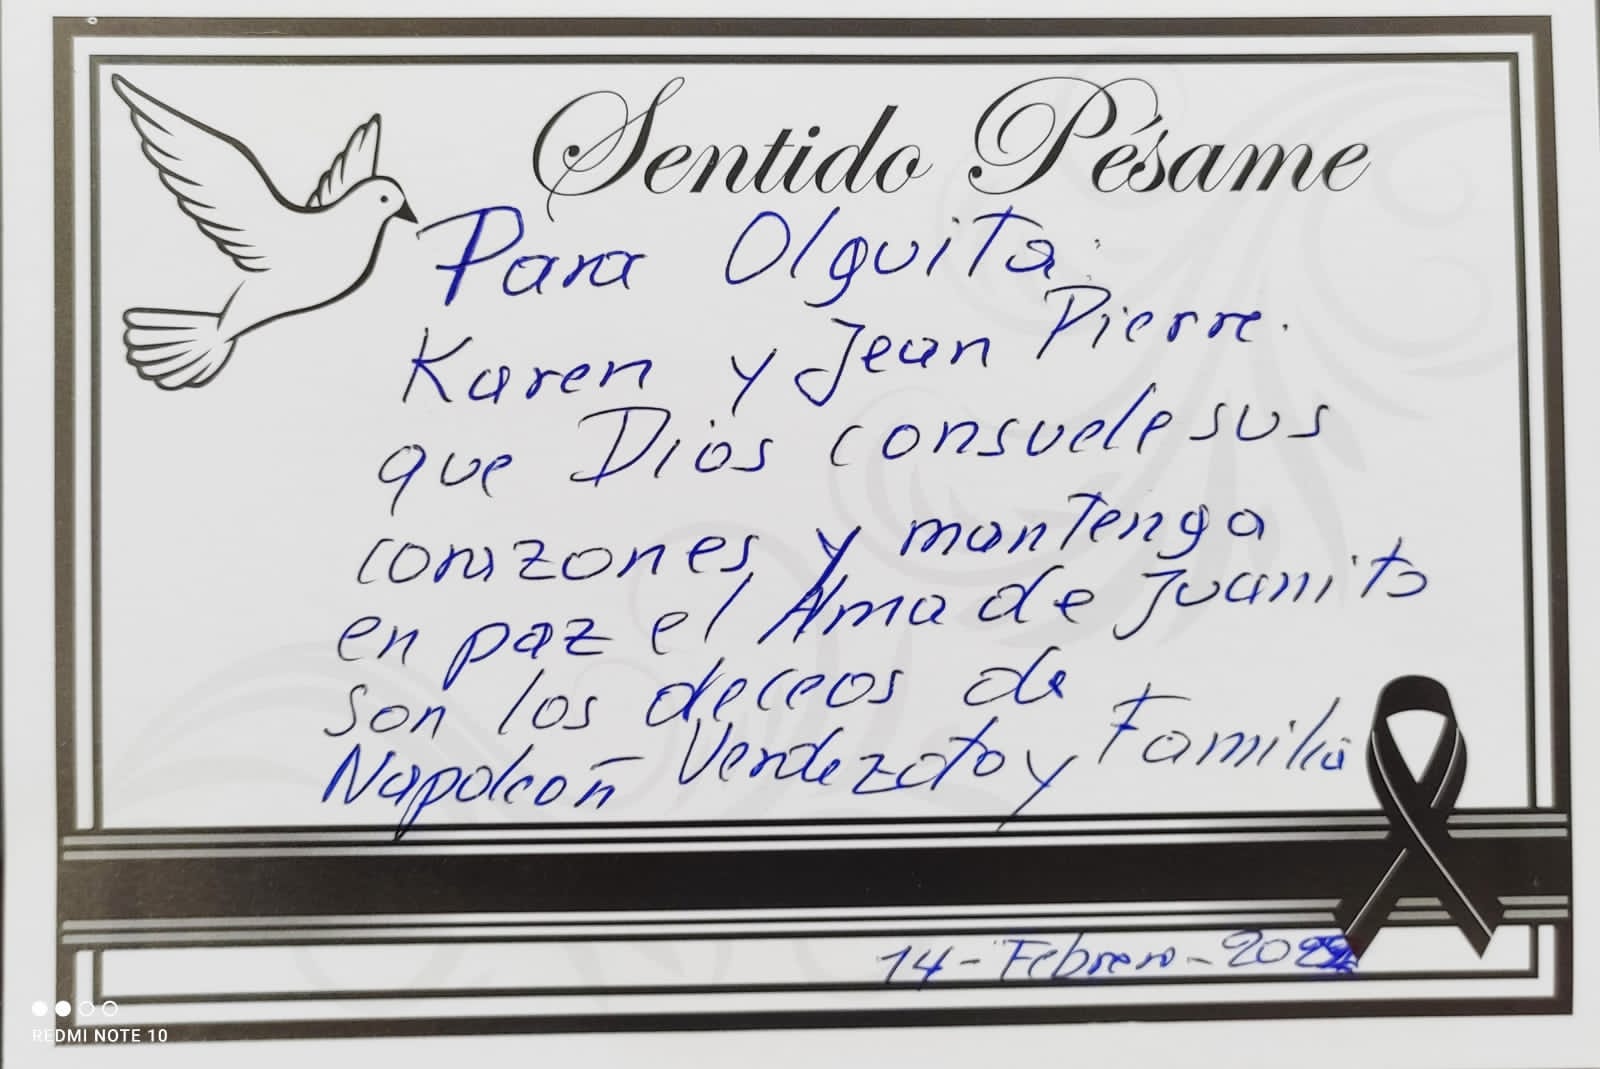 Sentido Pésame
Para Olguita:
Karen y Jean Pierre.
que Dios consuele sus
corazones y mantenga
en paz el Alma de Juanito
son los deceos de
Napoleón Verdezoto y Familia
14-Febrero-
REDMI NOTE 10